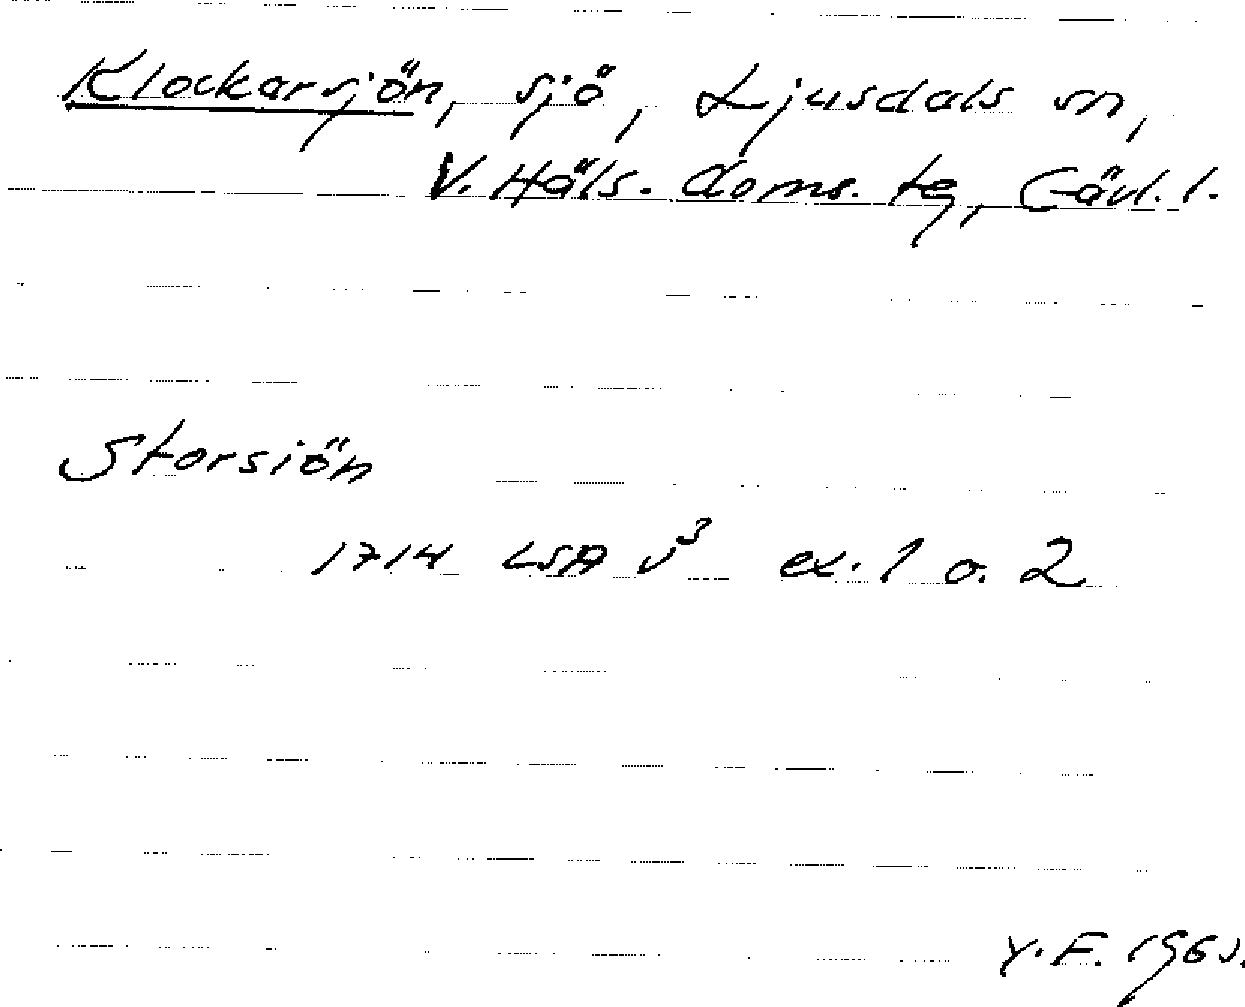 Klockarsjön, sjö, Ljusdals sn,
V. Häls. doms. tg, Gävl. l.
Storsiön
1714 LSA v³ ex. 1 o. 2
Y. F.